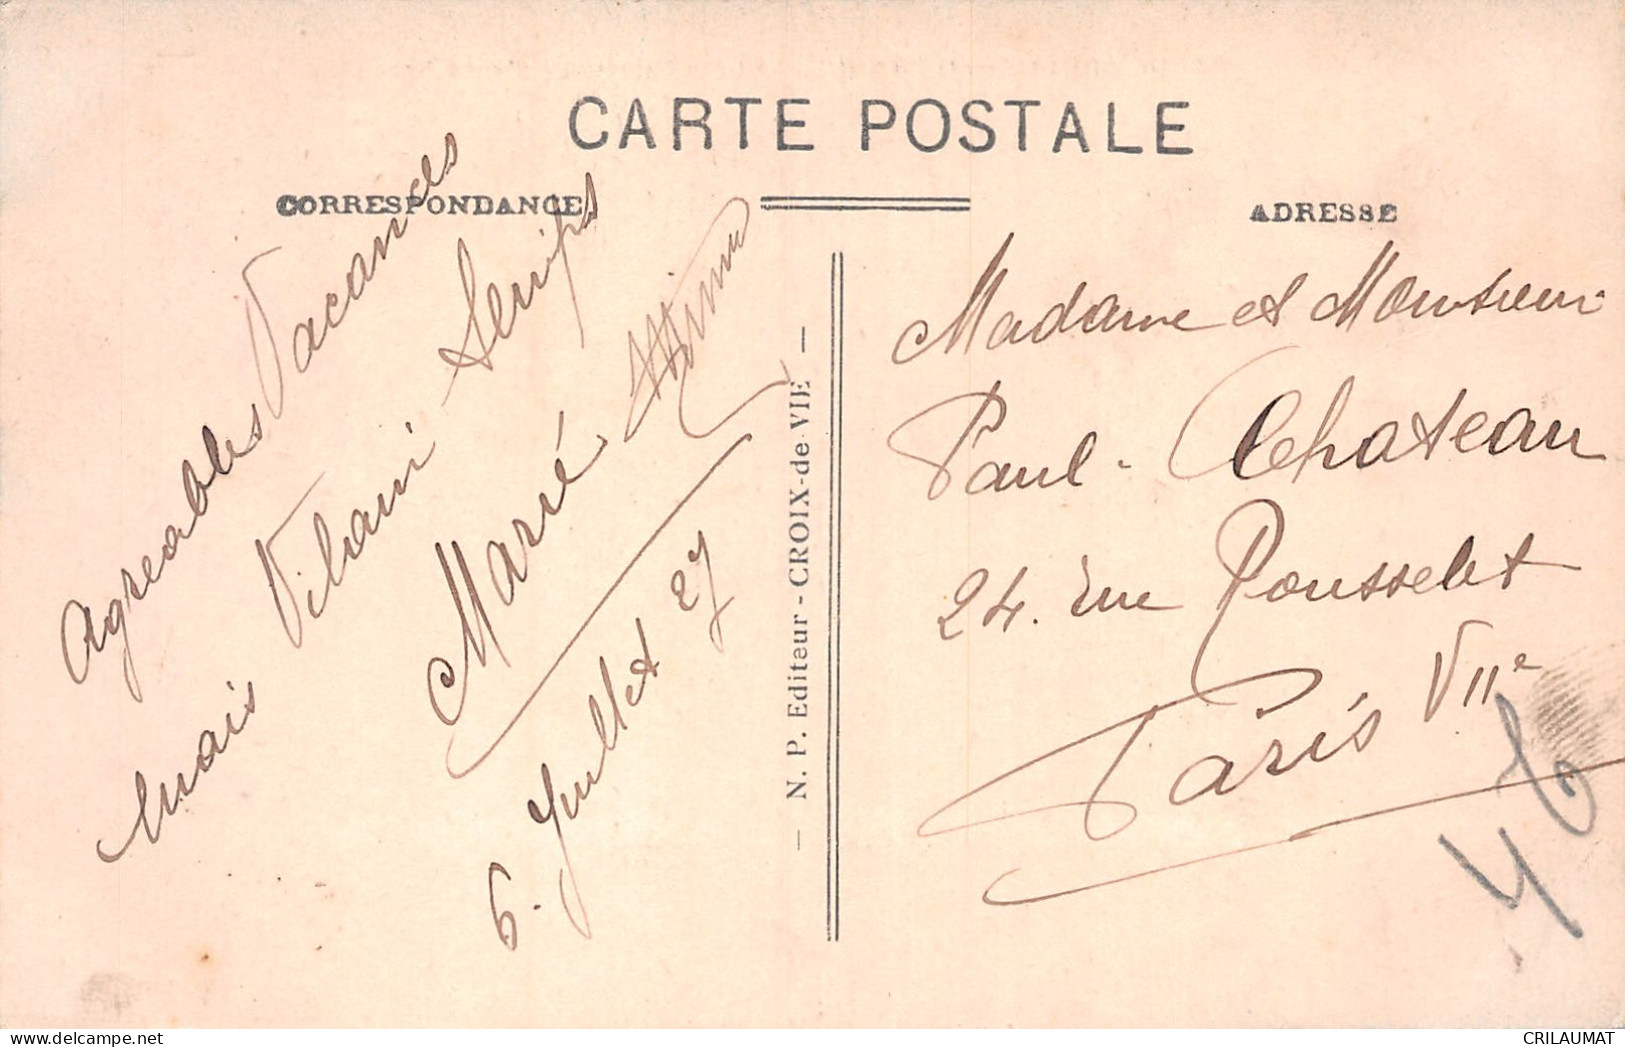 CARTE POSTALE
CORRESPONDANCE
ADRESSE
Agreables Vacances
mais Vilain Temps
Marré
6. Juillet 27
— N. P. Editeur - CROIX-de-VIE —
Madame et Monsieur
Paul Chateau
24. rue Rousselet
Paris VIIe
46
CRILAUMAT